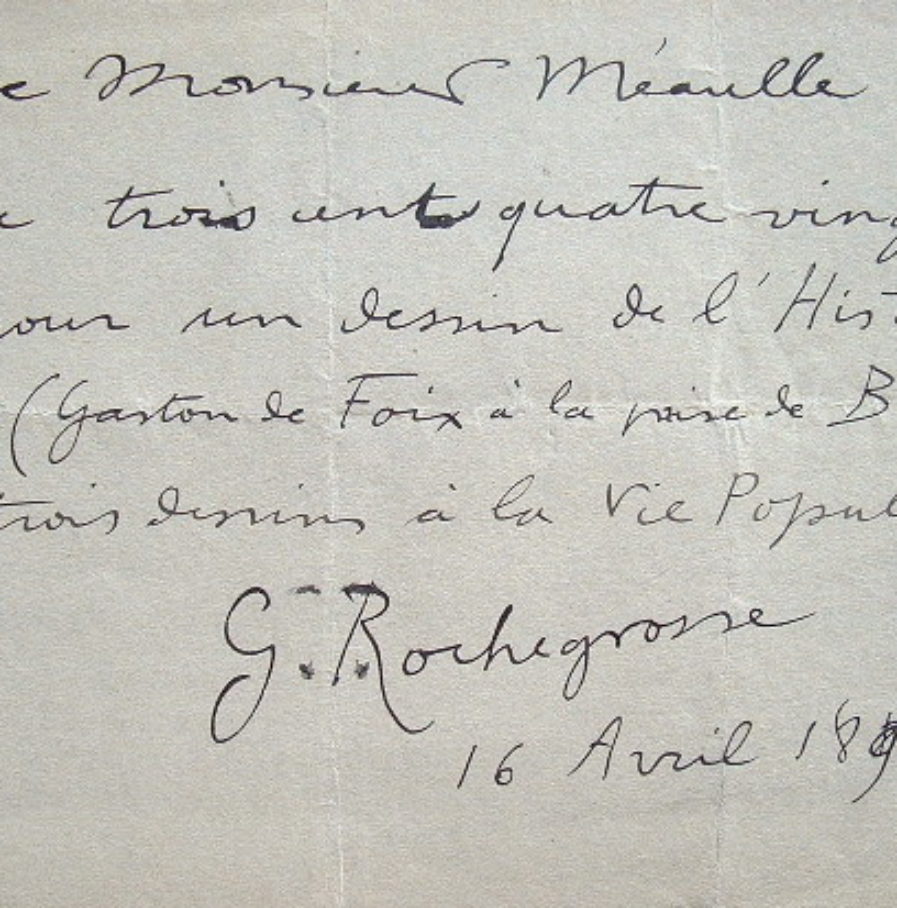 Monsieur Méaulle
trois cent quatre ving
our un dessin de l'Hist
(Gaston de Foix à la prise de B
trois dessins à la Vie Popul
G. Rochegrosse
16 Avril 18